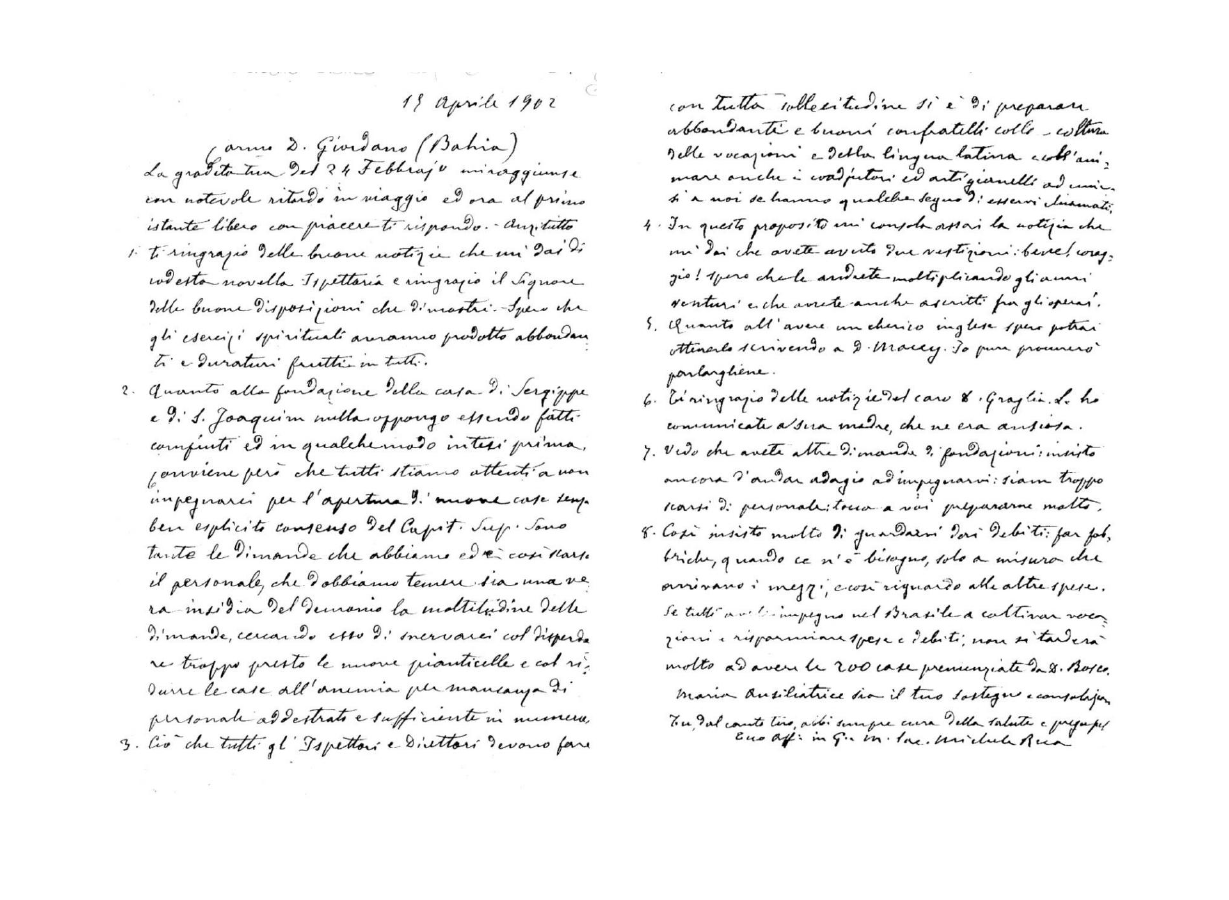 15 Aprile 1902
Carmo D. Giordano (Bahia)
La gradita tua del 24 Febbrajo mi raggiunse
con notevole ritardo in viaggio ed ora al primo
istante libero con piacere ti rispondo. - Anzitutto
1. ti ringrazio delle buone notizie che mi dai di
codesta novella Ispettoria e ringrazio il Signore
delle buone disposizioni che dimostri. - Spero che
gli esercizi spirituali avranno prodotto abbondan
ti e duraturi frutti in tutti.
2. Quanto alla fondazione della casa di Sergippe
e di S. Joaquim nulla oppongo essendo fatti
compiuti ed in qualche modo intesi prima,
conviene però che tutti stiamo attenti a non
impegnarci per l'apertura di nuove case senza
ben esplicito consenso del Capit. Sup. Sono
tante le dimande che abbiamo ed è così scarso
il personale, che dobbiamo temere sia una ve
ra insidia del demonio la moltitudine delle
dimande, cercando esso di snervarci col disperde
re troppo presto le nuove pianticelle e col ri-
durre le case all'anemia per mancanza di
personale addestrato e sufficiente in numero.
3. Ciò che tutti gl'Ispettori e Direttori devono fare
con tutta sollecitudine si è di preparare
abbondanti e buoni confratelli colla coltura
delle vocazioni e della lingua latina e coll'ani-
mare anche i coadjutori ed artigianelli ad unir-
si a noi se hanno qualche segno di esservi chiamati.
4. In questo proposito mi consola assai la notizia che
mi dai che avete avuto due vestizioni: bene! corag-
gio! spero che le andrete moltiplicando gli anni
venturi e che avrete anche ascritti fra gli operai.
5. Quanto all'avere un cherico inglese spero potrai
ottenerlo scrivendo a D. Macey. Io pure procurerò
parlargliene.
6. Ti ringrazio delle notizie del caro D. Graglia. Le ho
comunicate a sua madre, che ne era ansiosa.
7. Vedo che avete altre dimande di fondazioni: insisto
ancora d'andar adagio ad impegnarvi: siam troppo
scarsi di personale: tocca a voi prepararne molto.
8. Così insisto molto di guardarvi dai debiti: far fab-
briche, quando ce n'è bisogno, solo a misura che
arrivano i mezzi; e così riguardo alle altre spese.
Se tutti impegno nel Brasile a coltivar voca-
zioni e risparmiare spese e debiti; non si tarderà
molto ad avere le 200 case prenunziate da D. Bosco.
Maria Ausiliatrice sia il tuo sostegno e consolazion
Tu, dal canto tuo, abbi sempre cura della salute e prega pel
Tuo aff. in G. e M. Sac. Michele Rua